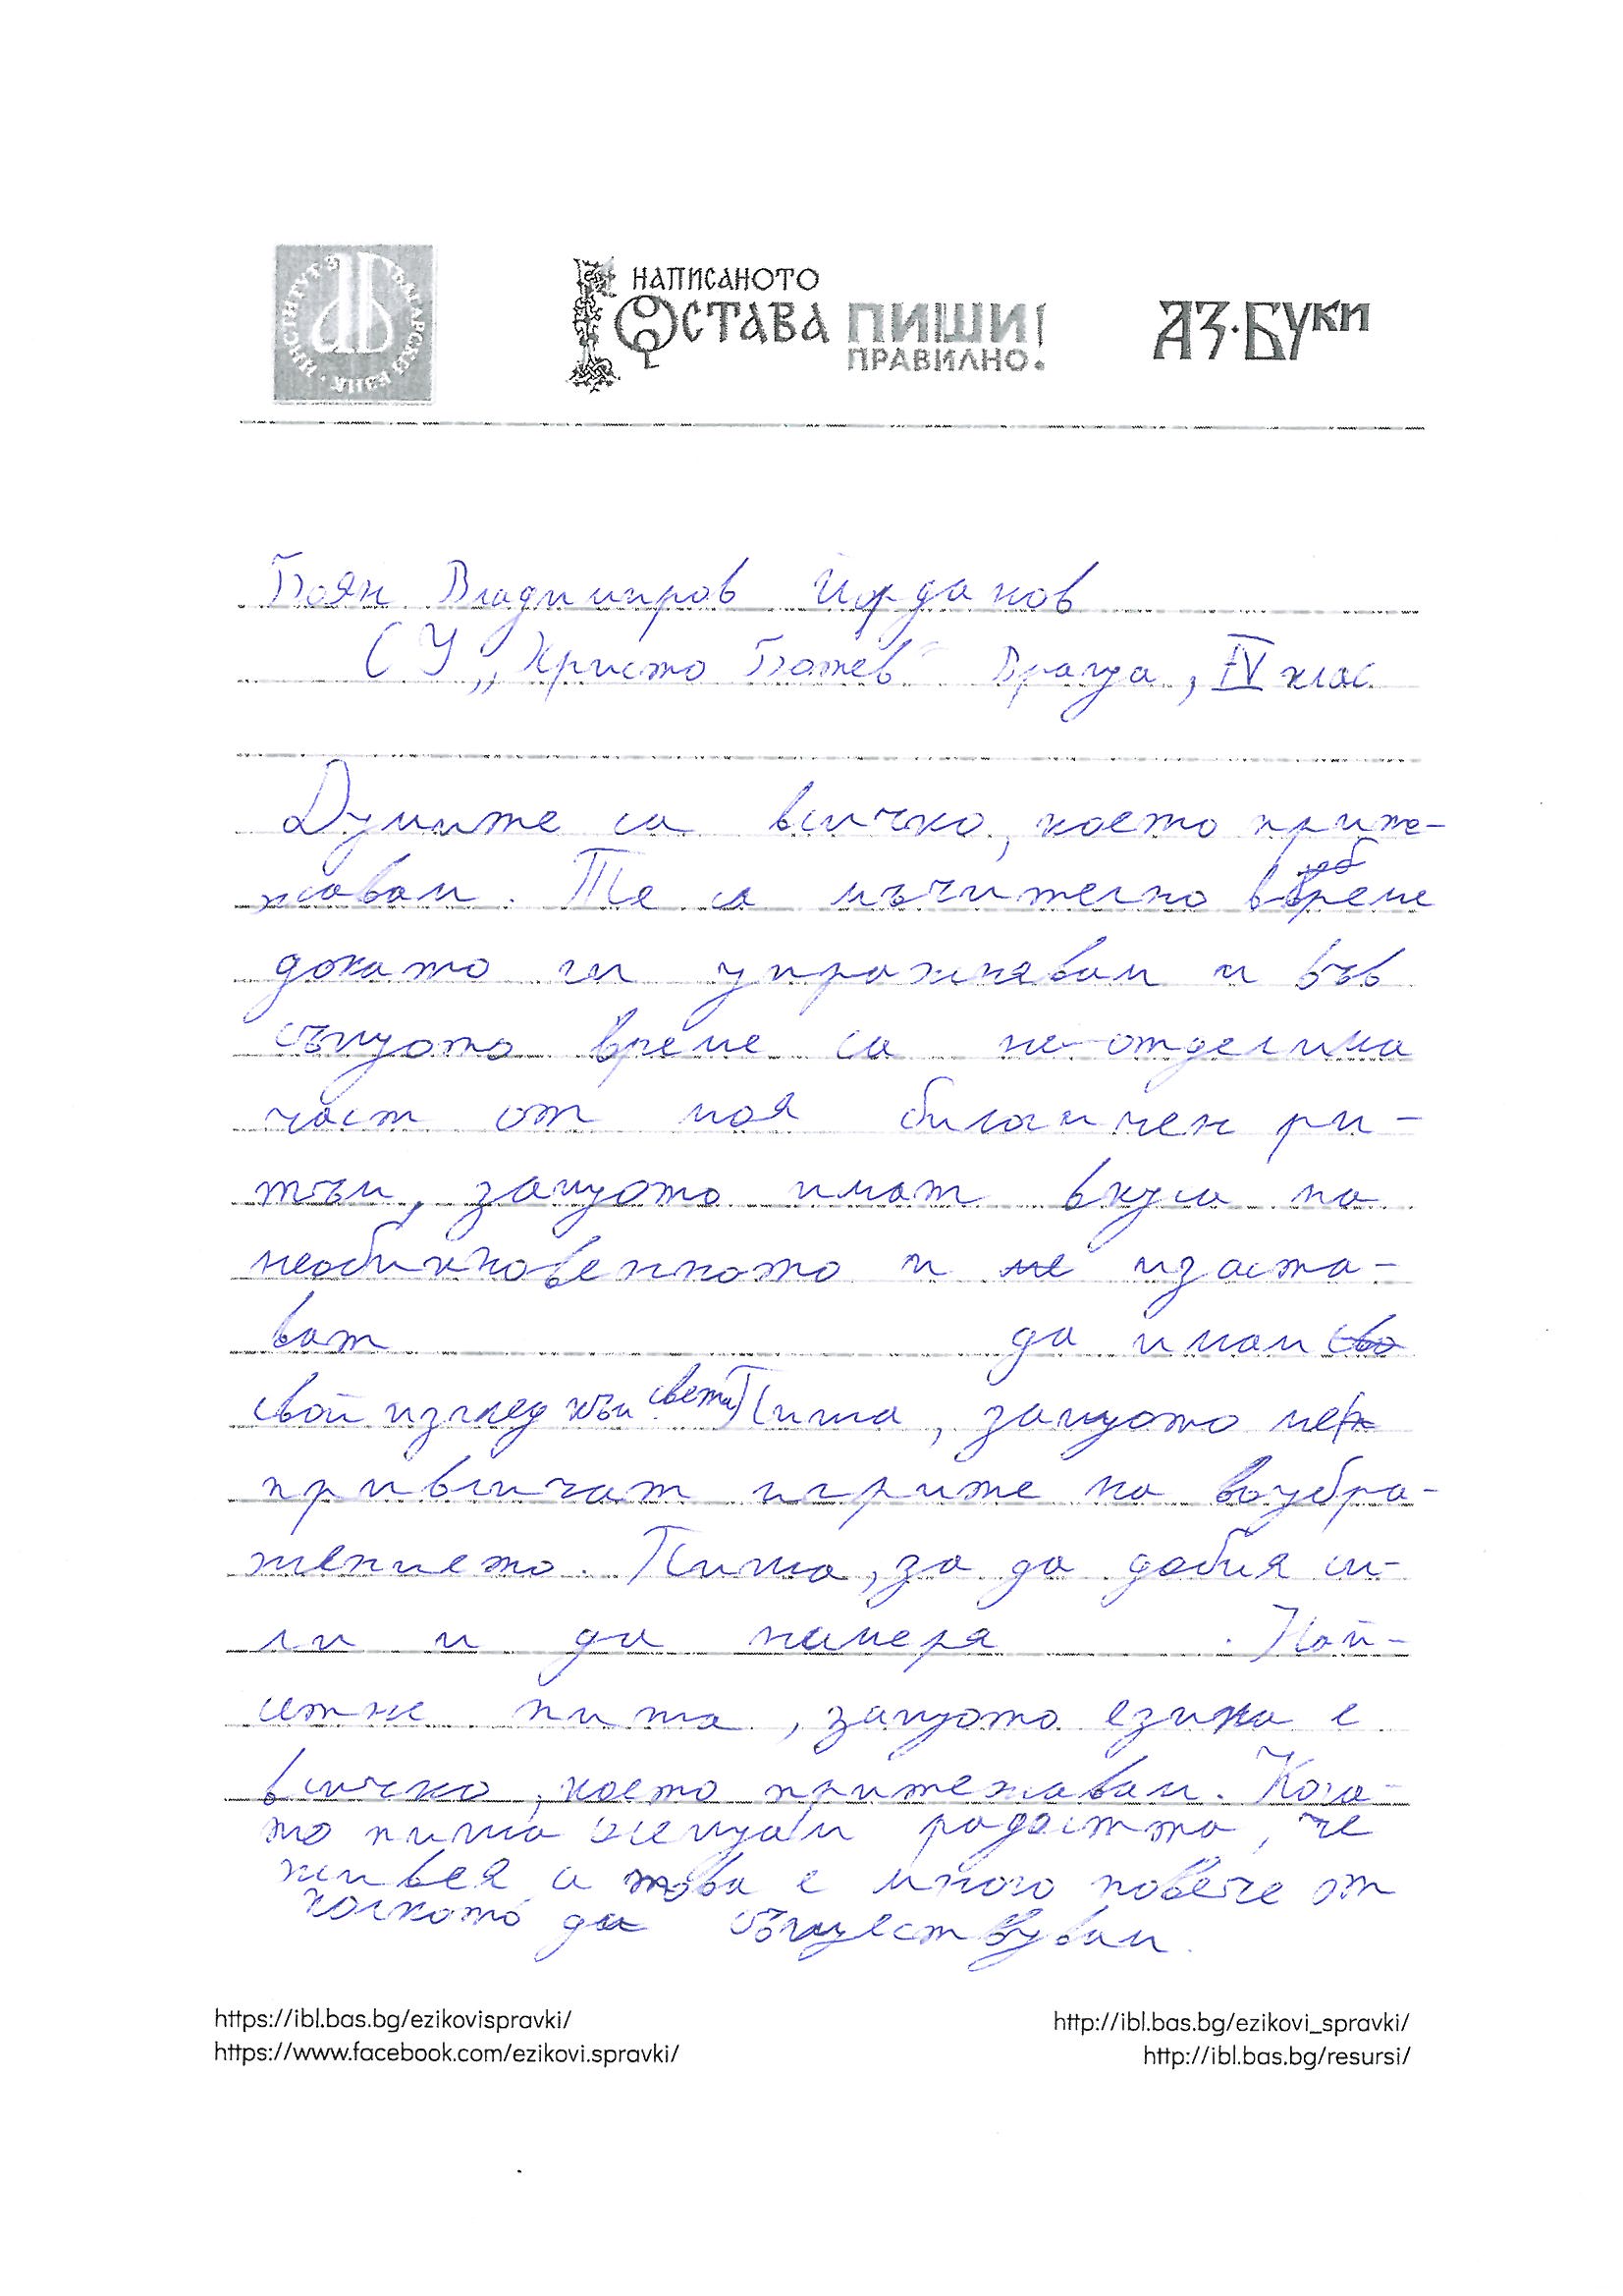 ИНСТИТУТ ЗА БЪЛГАРСКИ ЕЗИК
НАПИСАНОТО
ОСТАВА ПИШИ
ПРАВИЛНО!
АЗ·БУКИ
Боян Владимиров Йорданов
СУ „Христо Ботев“ Враца, IV клас
Думите са всичко, което прите-
жавам. Те са мъчително бреме
докато ги упражнявам и във
същото време са не отделима
част от моя биологичен ри-
тъм, защото имат вкуса на
необикновенното и ме изоста-
ват да имам
свой изглед към света Пиша, защото ме
привличат игрите на воубра-
жението. Пиша, за да добия си-
ли и да намеря . Най-
сетне пиша, защото езика е
всичко, което притежавам. Кога-
то пиша усещам радостта, че
живея а това е много повече от
колкото да съществувам.
https://ibl.bas.bg/ezikovispravki/
http://ibl.bas.bg/ezikovi_spravki/
https://www.facebook.com/ezikovi.spravki/
http://ibl.bas.bg/resursi/